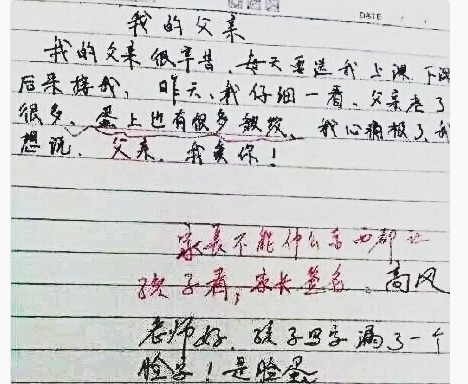 DATE
我的父亲
我的父亲很辛苦、每天要送我上课、下课
后来接我,昨天、我仔细一看、父亲老了
很多、蛋上也有很多皱纹、我心痛极了、我
想说、父亲、我爱你!
家长不能什么东西都让
孩子看,家长签名、高风
老师好、孩子写字漏了一个
脸字!是脸蛋